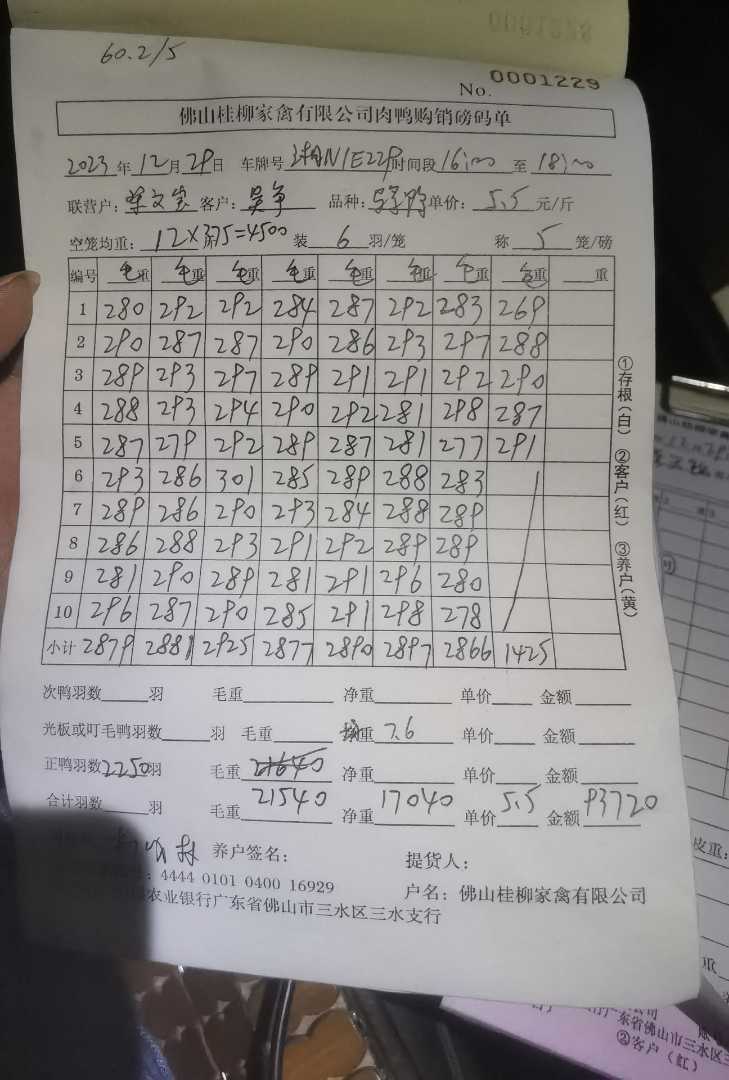 0001228
60.2/5
No. 0001229
佛山桂柳家禽有限公司肉鸭购销磅码单
2023 年 12 月 29 日 车牌号 N1E229 时间段 16:00 至 18:00
联营户: 客户: 吴争 品种: 单价: 5.5 元/斤
空笼均重: 12×375=4500 装 6 羽/笼 称 5 笼/磅
编号 毛重 毛重 毛重 毛重 毛重 毛重 毛重 毛重 重
1 280 292 292 284 287 292 283 269
2 290 287 287 290 286 293 297 288
3 289 293 297 289 291 291 292 290
4 288 293 294 290 292 281 298 287
5 287 279 292 289 287 281 277 291
6 293 286 301 285 289 288 283
7 289 286 290 293 284 288 289
8 286 288 293 291 292 289 289
9 281 290 289 281 291 296 280
10 296 287 290 285 291 298 278
小计 2879 2881 2925 2877 2890 2897 2866 1425
①存根(白) ②客户(红) ③养户(黄)
次鸭羽数 羽 毛重 净重 单价 金额
光板或叮毛鸭羽数 羽 毛重 重 7.6 单价 金额
正鸭羽数 2250 羽 毛重 21640 净重 单价 金额
合计羽数 羽 毛重 21540 净重 17040 单价 5.5 金额 93720
养户签名: 提货人:
: 4444 0101 0400 16929 户名: 佛山桂柳家禽有限公司
农业银行广东省佛山市三水区三水支行
皮重:
东省佛山市三水
②客户(红)